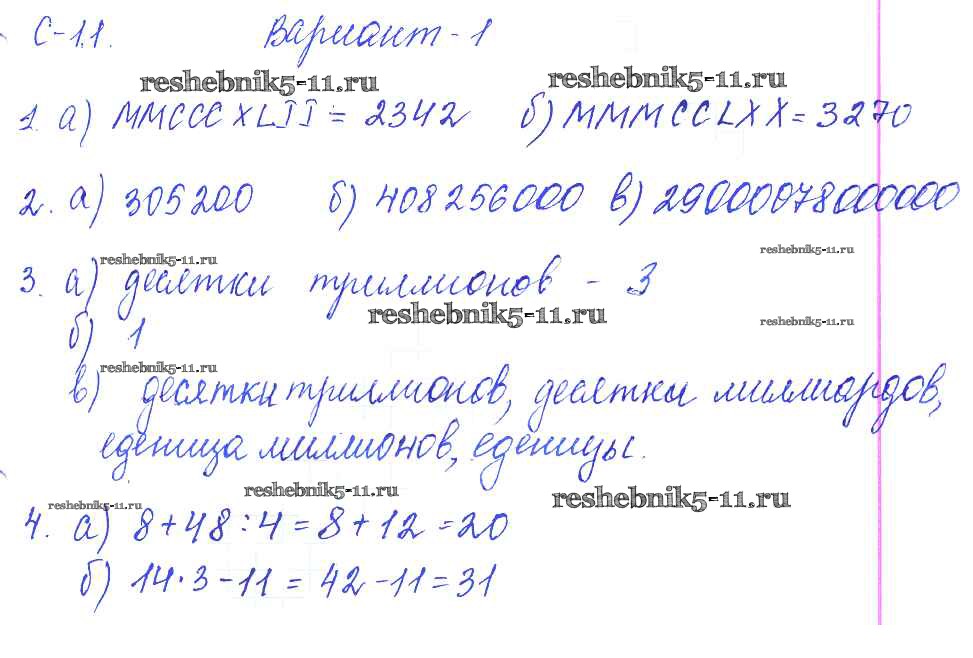 С-1.1. Вариант-1
reshebnik5-11.ru reshebnik5-11.ru
1. а) MMCCCXLII = 2342 б) MMMCCLXX = 3270
2. а) 305200 б) 408256000 в) 29000078000000
reshebnik5-11.ru reshebnik5-11.ru
3. а) десятки триллионов - 3
reshebnik5-11.ru reshebnik5-11.ru
б) 1
reshebnik5-11.ru
в) десятки триллионов, десятки миллиардов,
еденица миллионов, еденицы.
reshebnik5-11.ru reshebnik5-11.ru
reshebnik5-11.ru
4. а) 8+48:4=8+12=20
б) 14·3-11=42-11=31